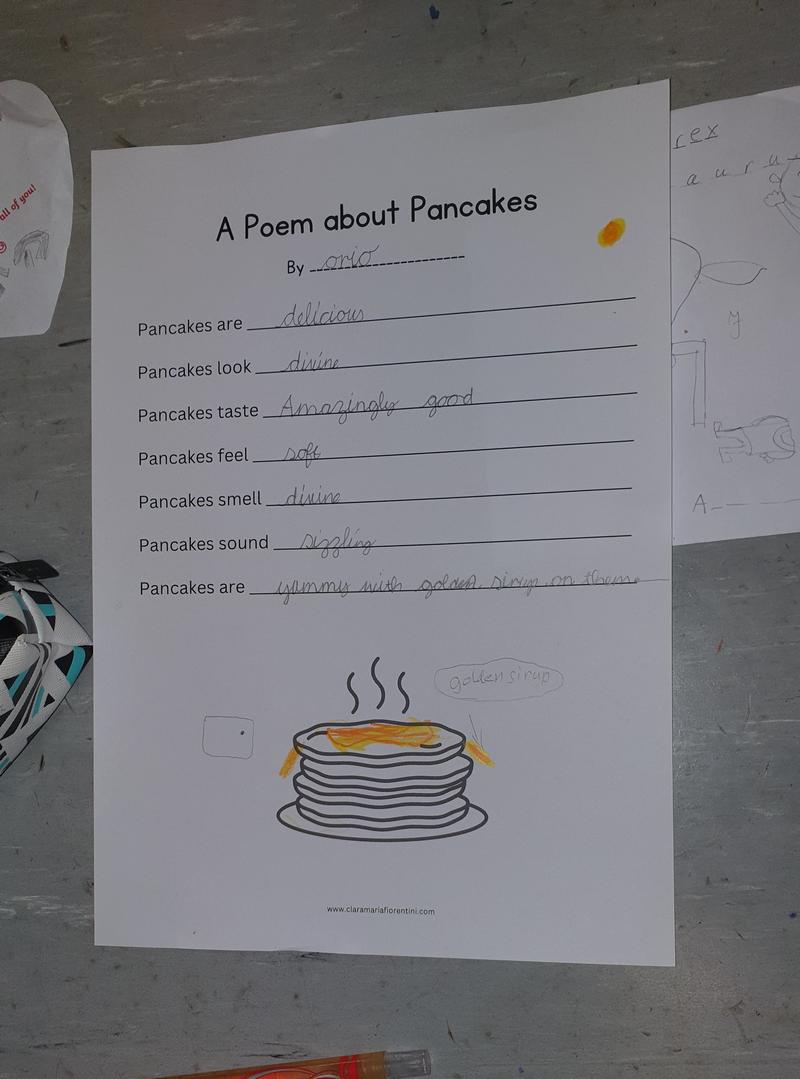 all of you!
rex
a u r u
A Poem about Pancakes
By orio
Pancakes are delicious
Pancakes look divine
Pancakes taste Amazingly good
Pancakes feel soft
Pancakes smell divine
Pancakes sound sizzling
Pancakes are yammy with golden sirup on them
y
A
golden sirup
www.claramariafiorentini.com